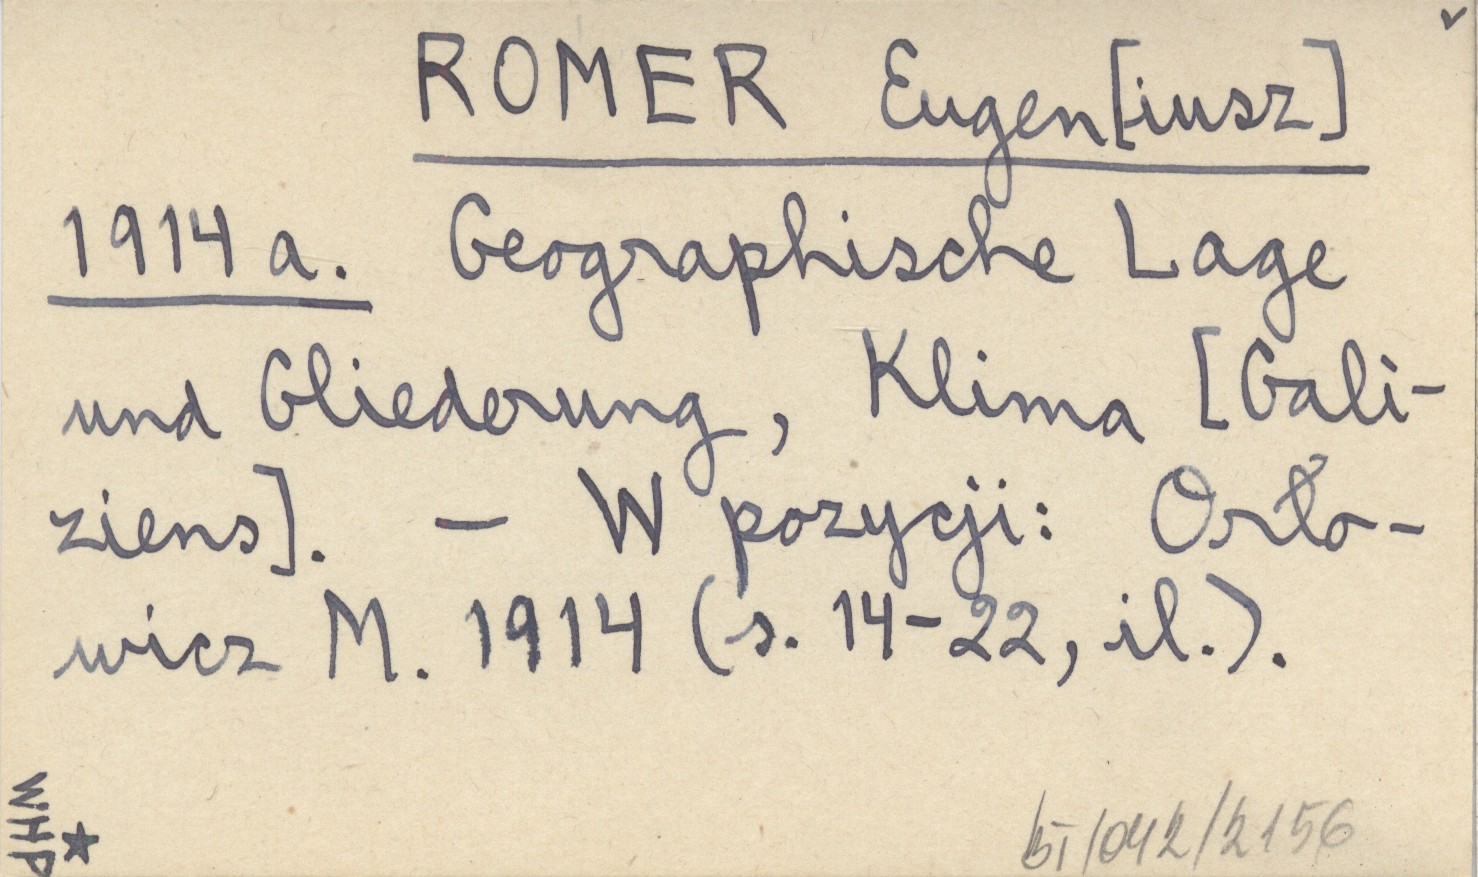 ROMER Eugen[iusz]
1914a. Geographische Lage
und Gliederung, Klima [Gali-
ziens]. — W pozycji: Orło-
wicz M. 1914 (s. 14-22, il.).
WHP
BI/042/2156